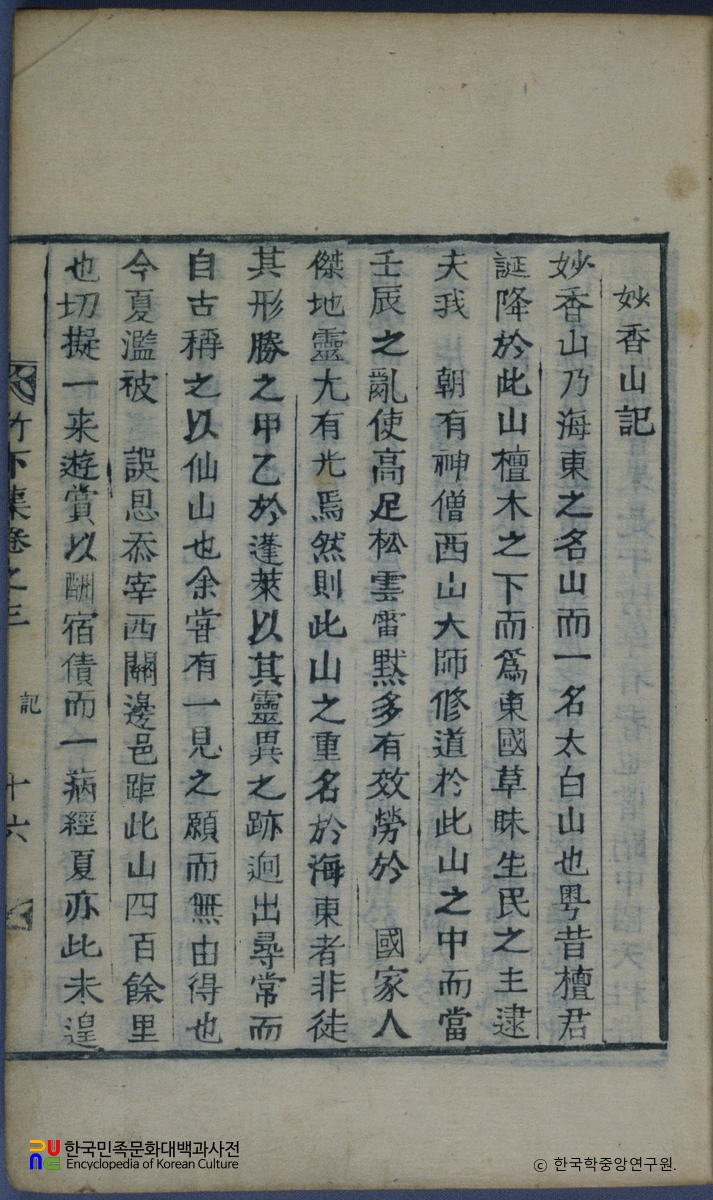 妙香山記
妙香山乃海東之名山而一名太白山也粤昔檀君
誕降於此山檀木之下而爲東國草昧生民之主逮
夫我 朝有神僧西山大師修道於此山之中而當
壬辰之亂使高足松雲雷默多有效勞於 國家人
傑地靈尤有光焉然則此山之重名於海東者非徒
其形勝之甲乙於蓬萊以其靈異之跡迥出尋常而
自古稱之以仙山也余嘗有一見之願而無由得也
今夏濫被 誤恩忝宰西關邊邑距此山四百餘里
也切擬一来遊賞以酬宿債而一病經夏亦此未遑
竹下集卷之三 記 十六
한국민족문화대백과사전
Encyclopedia of Korean Culture
ⓒ 한국학중앙연구원.